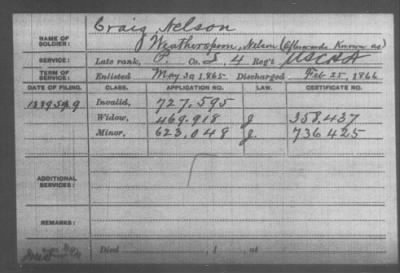 Craig Nelson
NAME OF SOLDIER: Weatherspoon, Nelson (Afterwards Known as)
SERVICE: Late rank, P. Co. I, 4 Reg't USCHA
TERM OF SERVICE: Enlisted May 20, 1865 Discharged Feb 25, 1866
DATE OF FILING. CLASS. APPLICATION NO. LAW. CERTIFICATE NO.
Invalid, 727.595
Widow, 469.918 J. 358.437
Minor, 623,048 J. 736425
ADDITIONAL SERVICES:
REMARKS:
Died , 1 , at